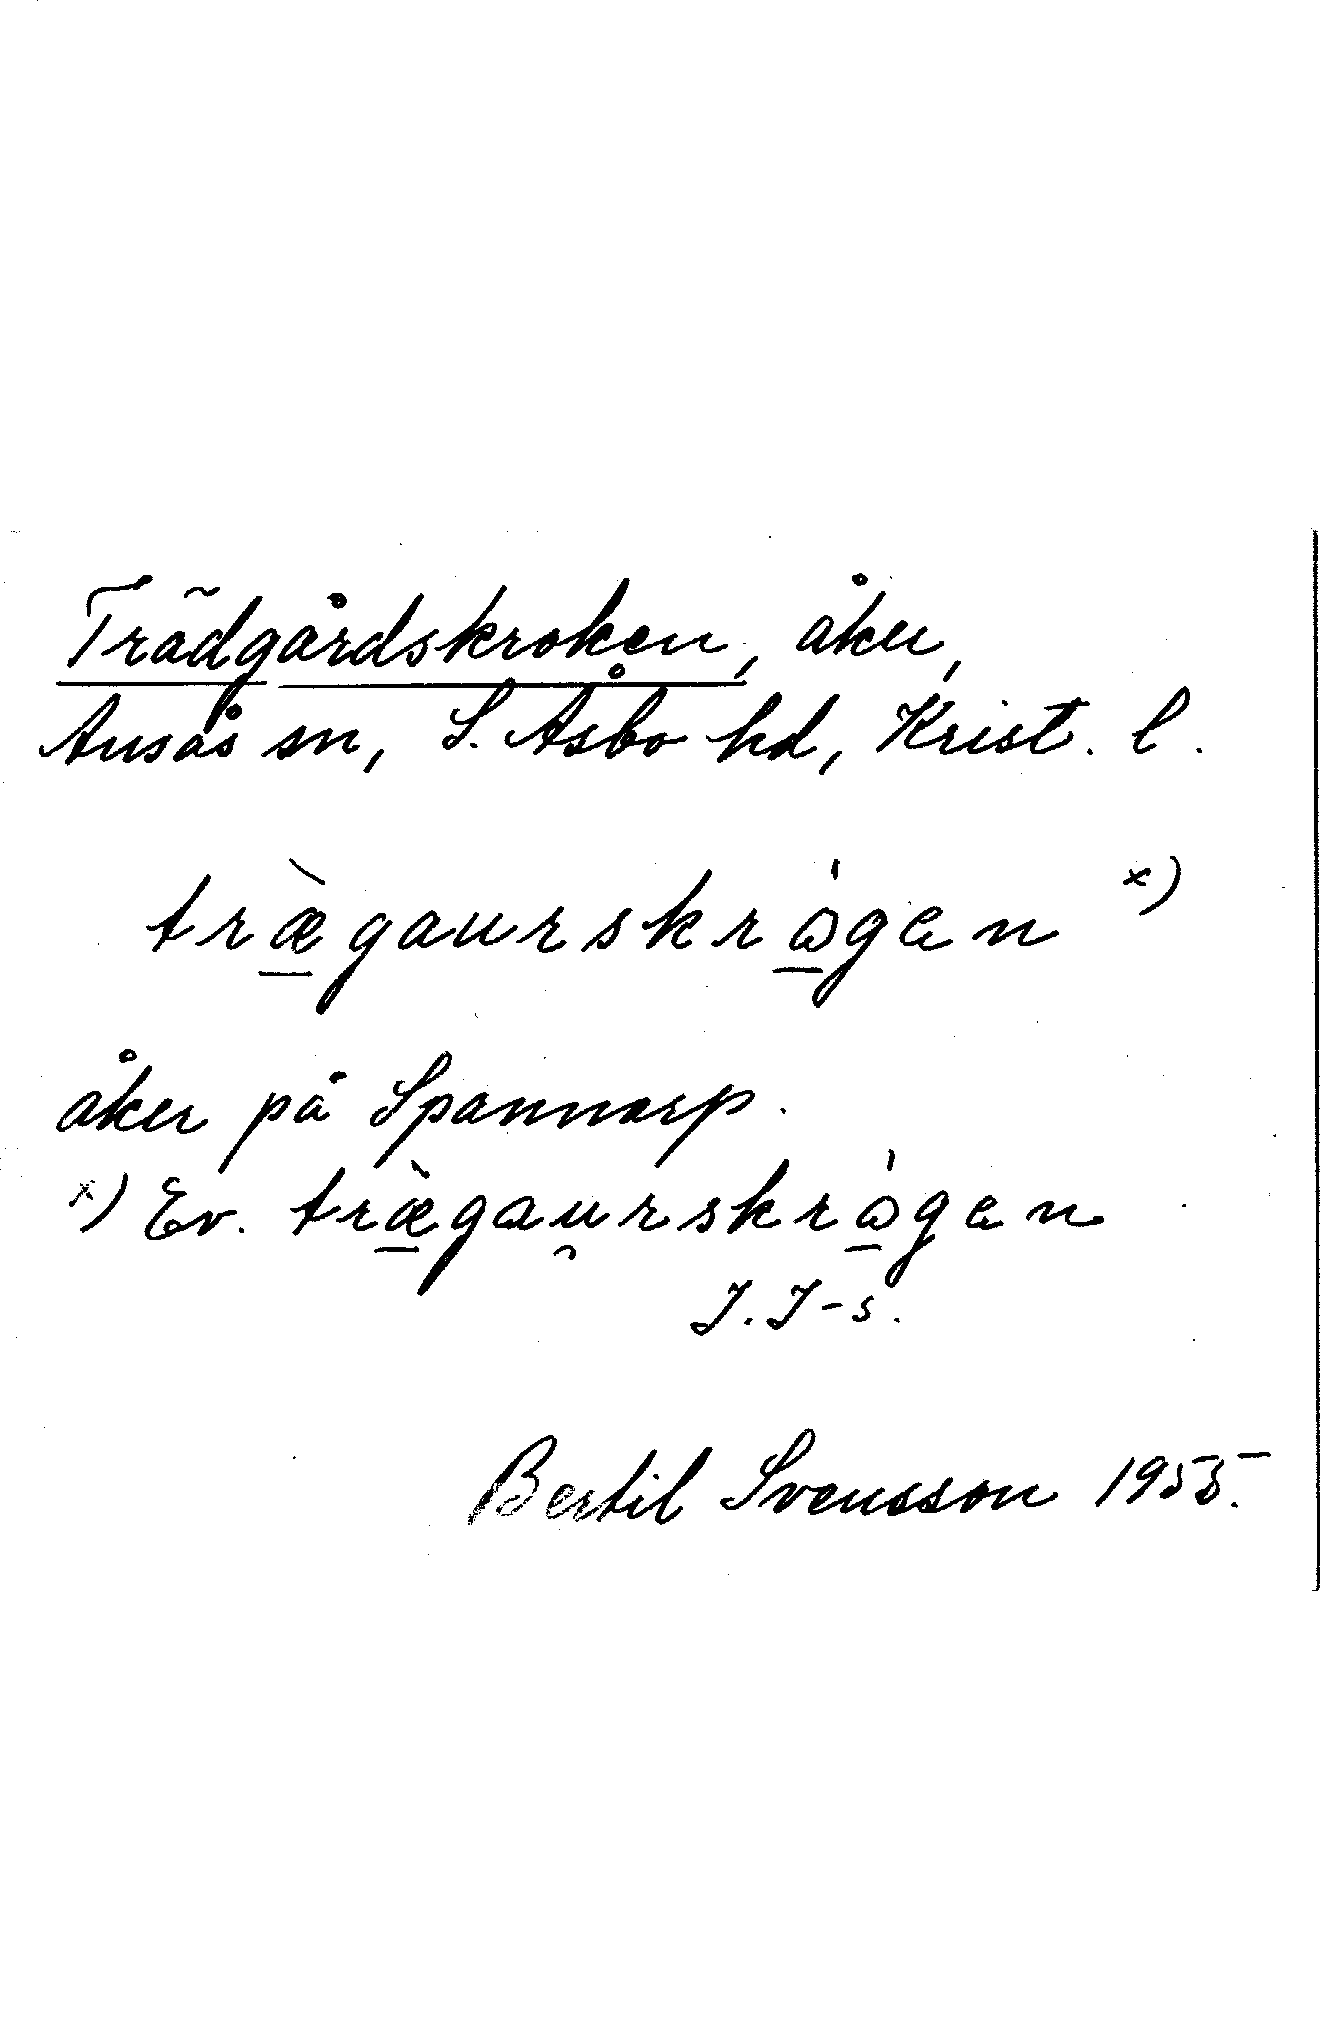 Trädgårdskroken, åker,
Ausås sn, S. Åsbo hd, Krist. l.
træ̱̀gaurskrɷ̱́gen x)
åker på Spannarp.
x) Ev. træ̱̀gau̯rskrɷ̱́gen
J. J-s.
Bertil Svensson 1955.